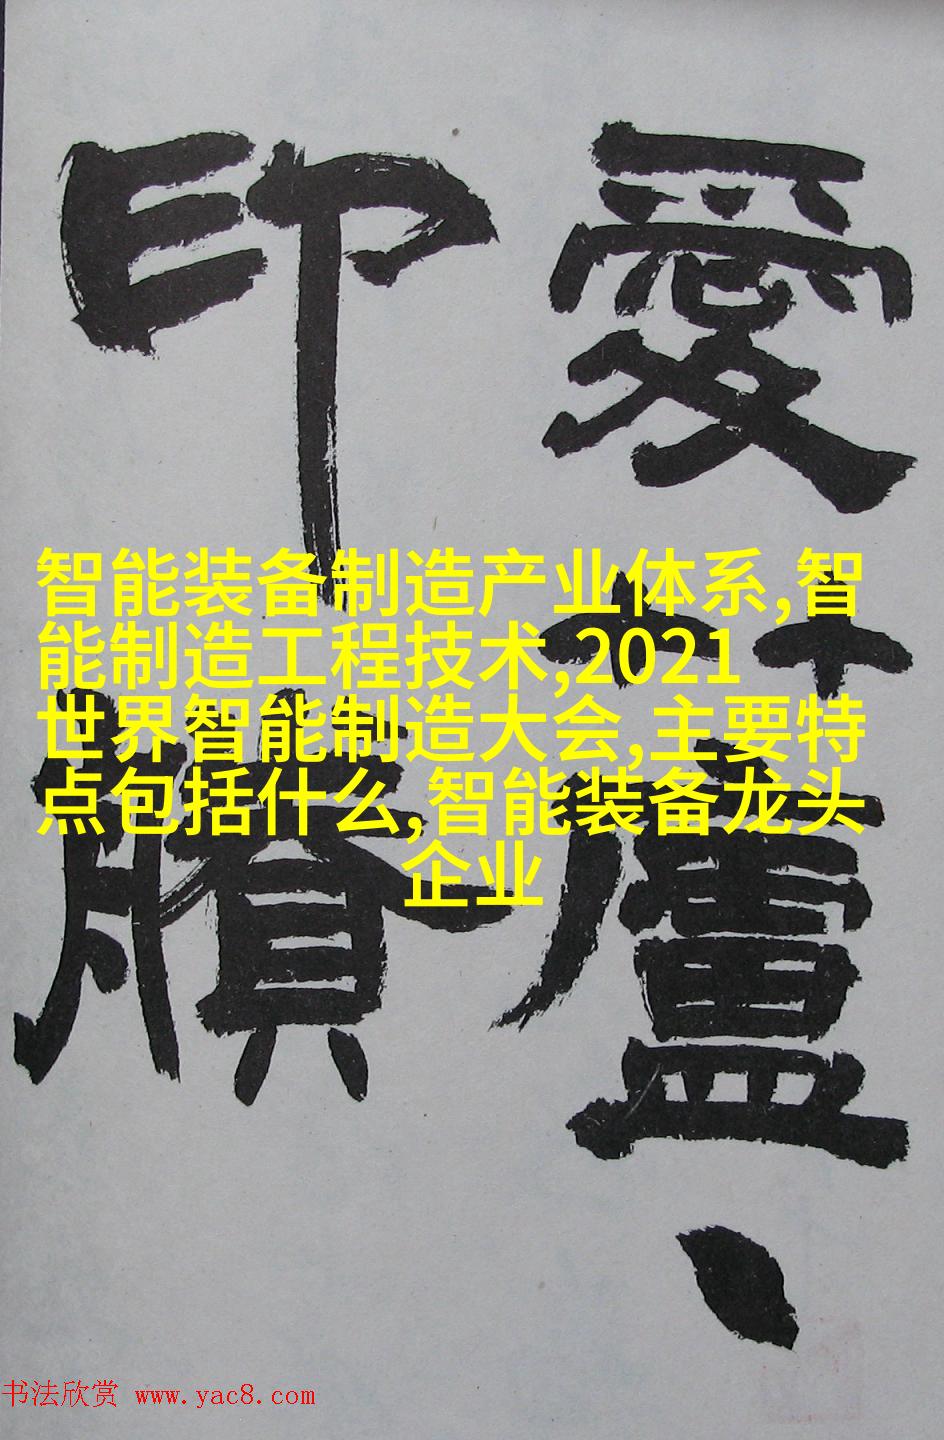 愛蘆
印
智能装备制造产业体系,智
能制造工程技术,2021
世界智能制造大会,主要特
点包括什么,智能装备龙头
企业
书法欣赏 www.yac8.com